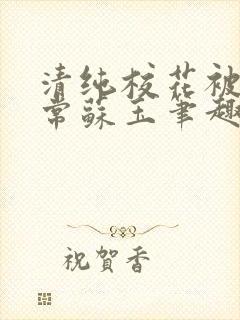 清纯校花被
常蘇玉筆趣
祝賀香